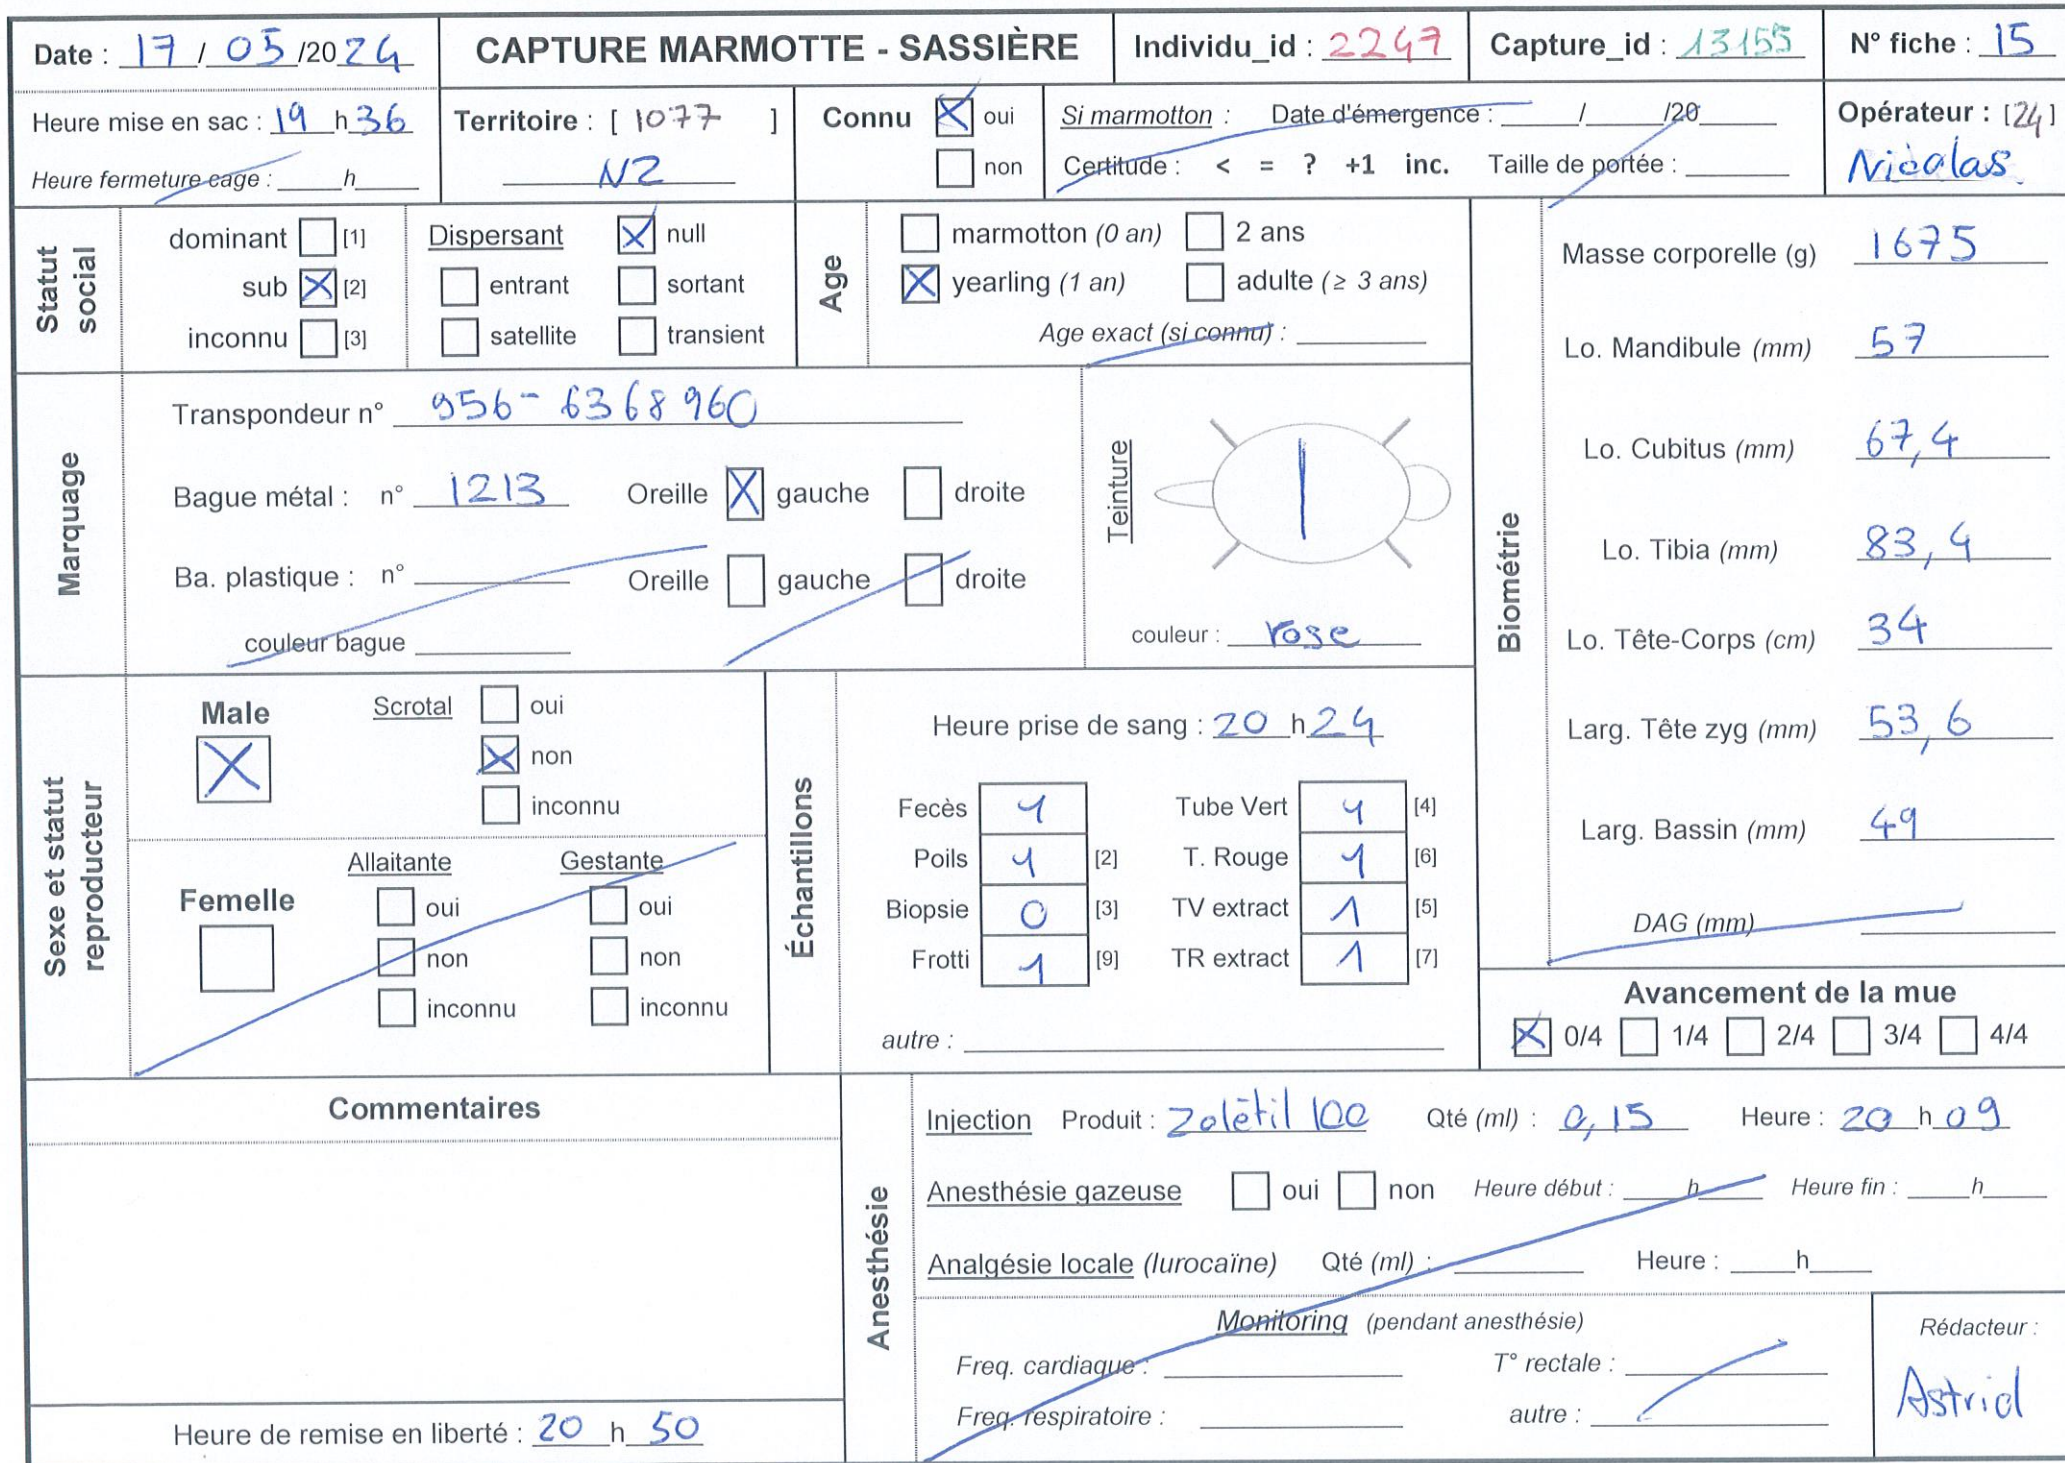 Date : 17 / 05 /2024 CAPTURE MARMOTTE - SASSIÈRE Individu_id : 2247 Capture_id : 13155 N° fiche : 15
Heure mise en sac : 19 h 36 Territoire : [ 1077 ] Connu ☒ oui Si marmotton : Date d'émergence : ____/____/20____ Opérateur : [24]
Heure fermeture cage : ____h____ NZ ☐ non Certitude : < = ? +1 inc. Taille de portée : ____ Nicolas
Statut social
dominant ☐ [1] Dispersant ☒ null
sub ☒ [2] ☐ entrant ☐ sortant
inconnu ☐ [3] ☐ satellite ☐ transient
Age
☐ marmotton (0 an) ☐ 2 ans
☒ yearling (1 an) ☐ adulte (≥ 3 ans)
Age exact (si connu) : ____
Marquage
Transpondeur n° 956- 6368960
Bague métal : n° 1213 Oreille ☒ gauche ☐ droite
Ba. plastique : n° ____ Oreille ☐ gauche ☐ droite
couleur bague ____
Teinture
couleur : rose
Biométrie
Masse corporelle (g) 1675
Lo. Mandibule (mm) 57
Lo. Cubitus (mm) 67,4
Lo. Tibia (mm) 83,4
Lo. Tête-Corps (cm) 34
Larg. Tête zyg (mm) 53,6
Larg. Bassin (mm) 49
DAG (mm) ____
Avancement de la mue
☒ 0/4 ☐ 1/4 ☐ 2/4 ☐ 3/4 ☐ 4/4
Sexe et statut reproducteur
Male ☒ Scrotal ☐ oui
☒ non
☐ inconnu
Femelle ☐ Allaitante Gestante
☐ oui ☐ oui
☐ non ☐ non
☐ inconnu ☐ inconnu
Échantillons
Heure prise de sang : 20 h 24
Fecès 1 Tube Vert 1 [4]
Poils 1 [2] T. Rouge 1 [6]
Biopsie 0 [3] TV extract 1 [5]
Frotti 1 [9] TR extract 1 [7]
autre : ____
Commentaires
Heure de remise en liberté : 20 h 50
Anesthésie
Injection Produit : Zolétil 100 Qté (ml) : 0,15 Heure : 20 h 09
Anesthésie gazeuse ☐ oui ☐ non Heure début : ____h____ Heure fin : ____h____
Analgésie locale (lurocaïne) Qté (ml) : ____ Heure : ____h____
Monitoring (pendant anesthésie)
Freq. cardiaque : ____ T° rectale : ____
Freq. respiratoire : ____ autre : ____
Rédacteur :
Astrid